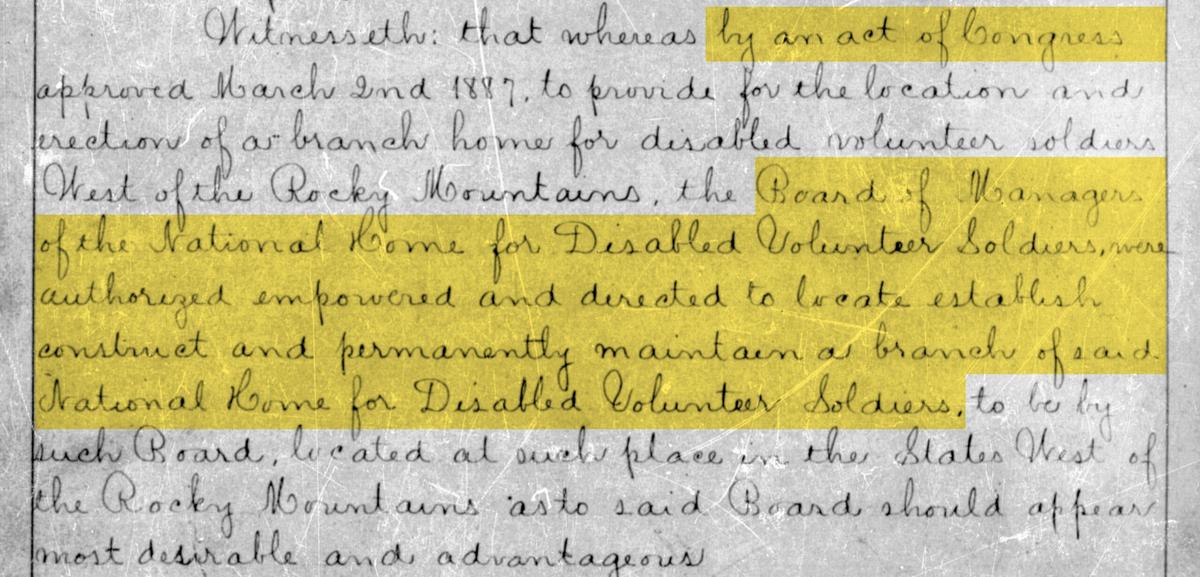 Witnesseth: that whereas by an act of Congress
approved March 2nd 1887, to provide for the location and
erection of a branch home for disabled volunteer soldiers
West of the Rocky Mountains, the Board of Managers
of the National Home for Disabled Volunteer Soldiers, were
authorized empowered and directed to locate establish
construct and permanently maintain a branch of said
National Home for Disabled Volunteer Soldiers, to be by
such Board, located at such place in the States West of
the Rocky Mountains as to said Board should appear
most desirable and advantageous